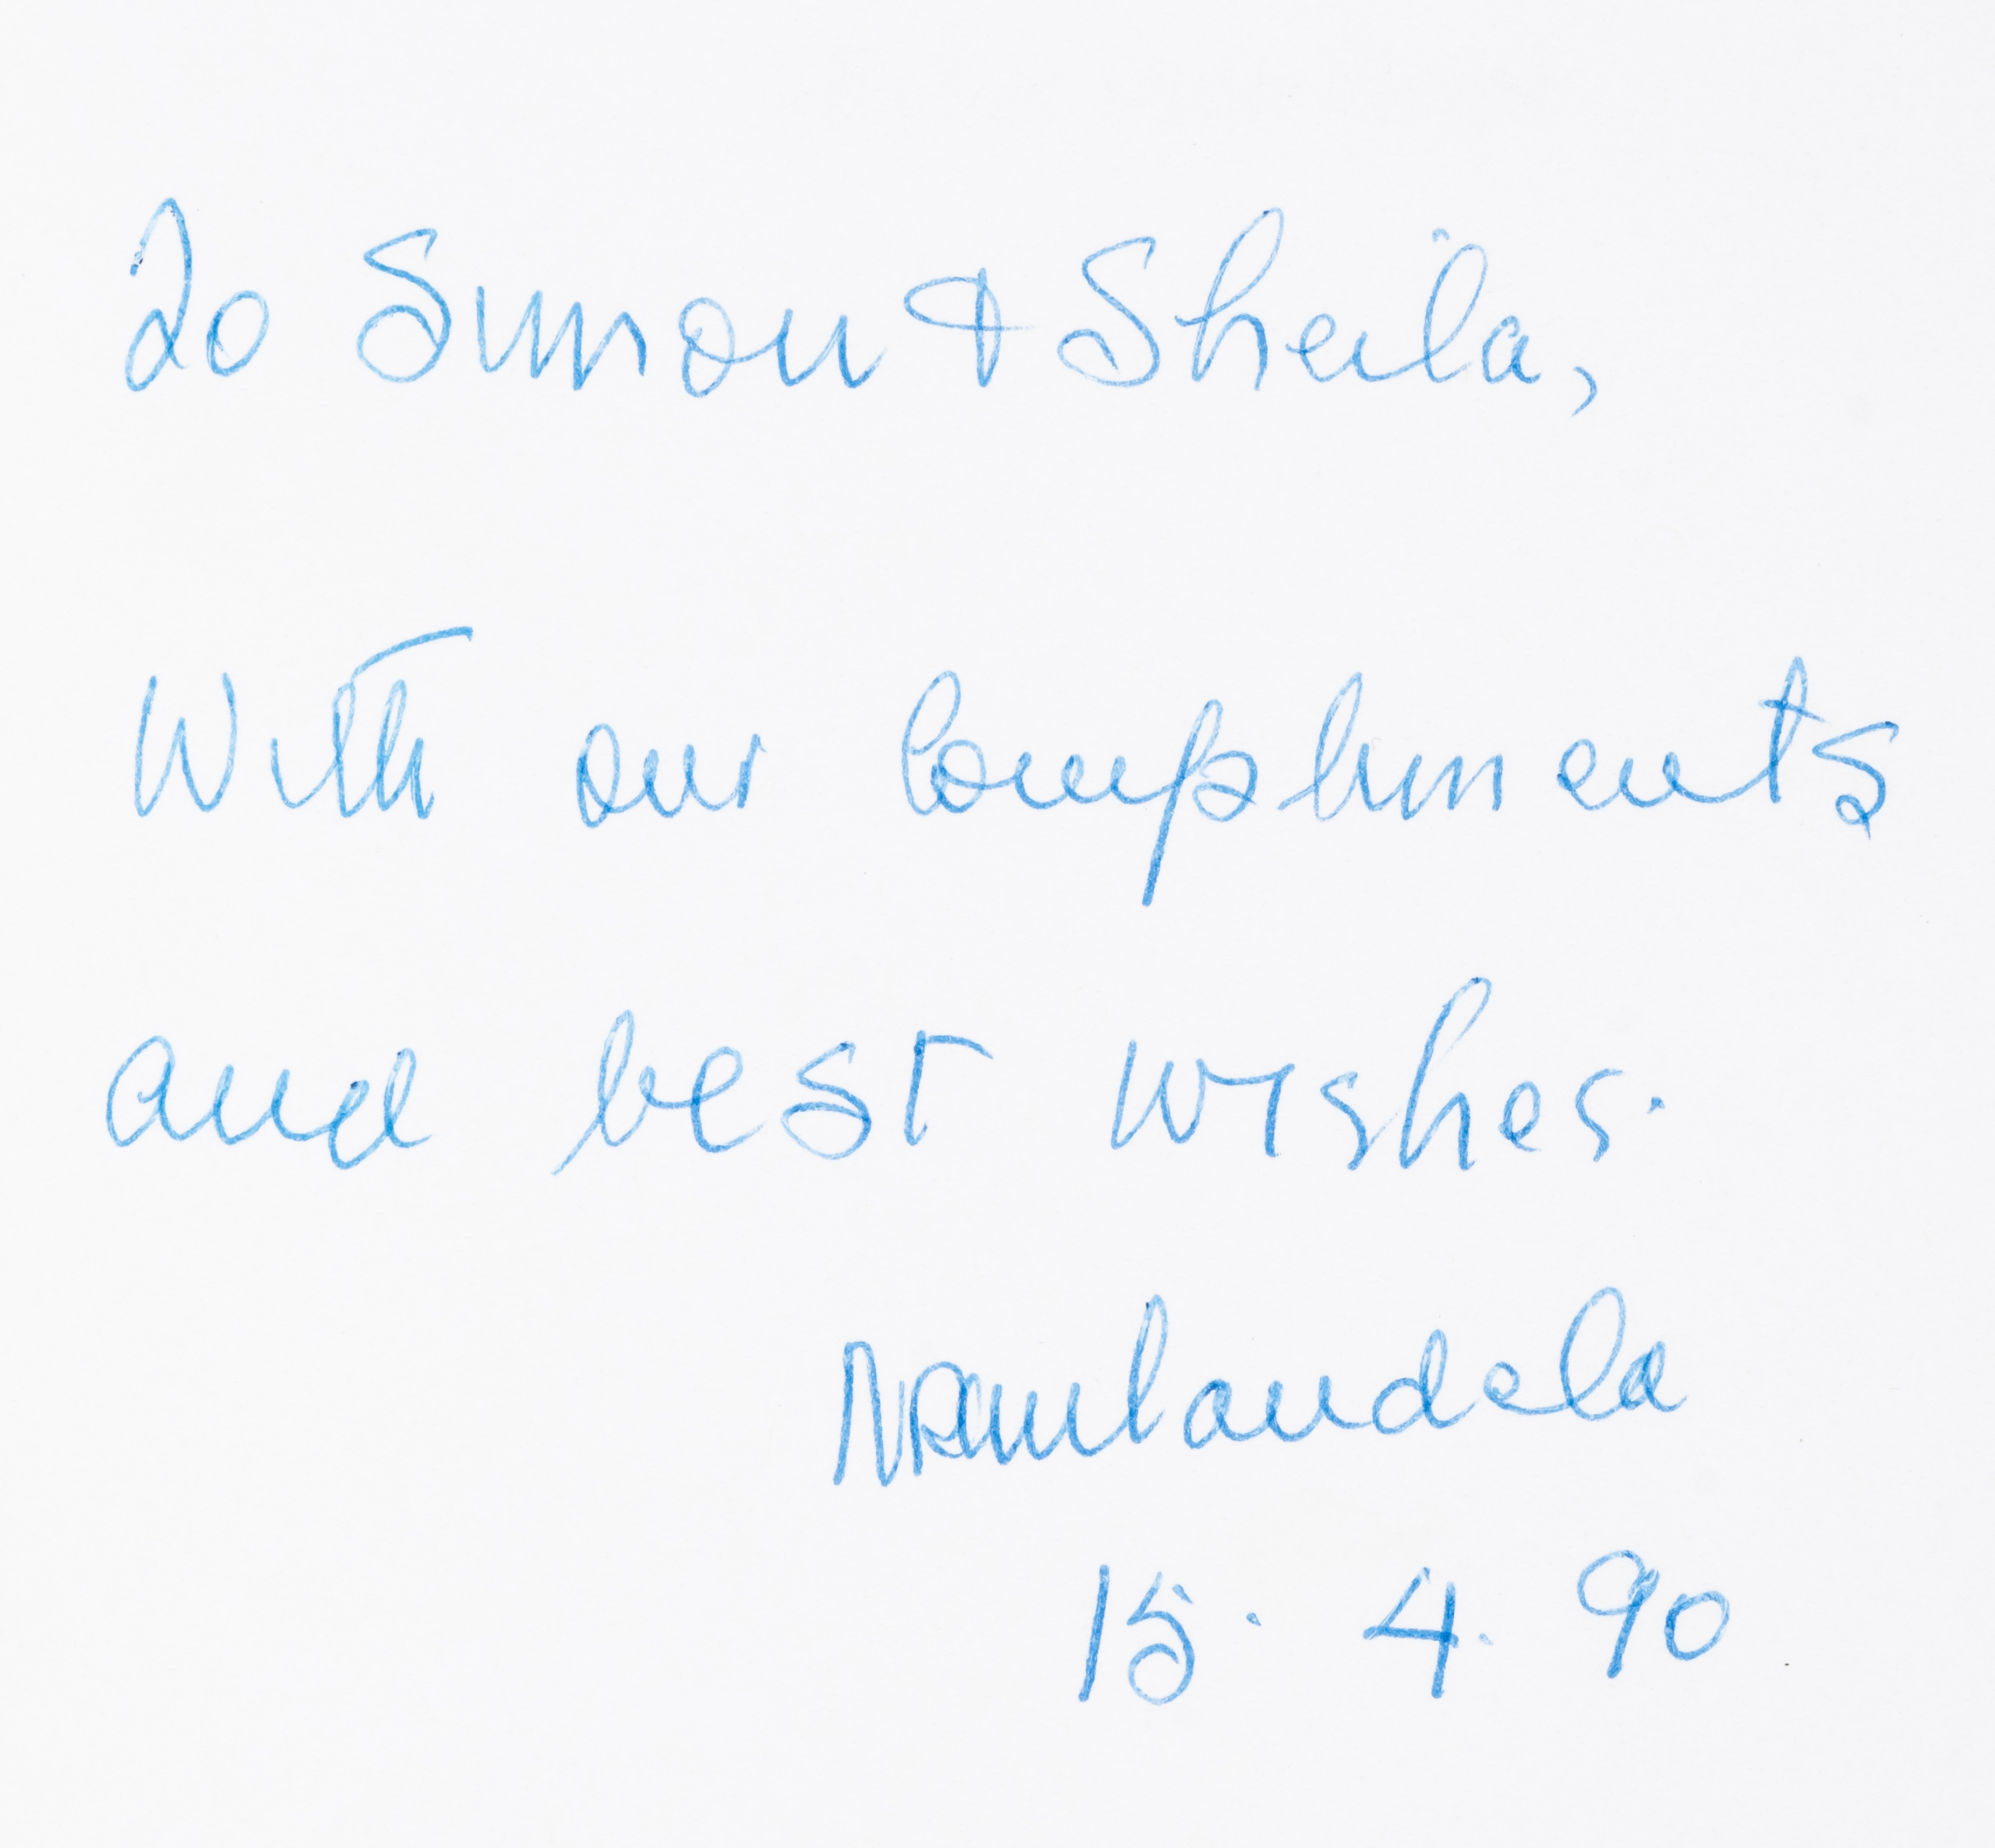 To Simon & Sheila,
With our compliments
and best wishes.
NRMandela
15. 4. 90